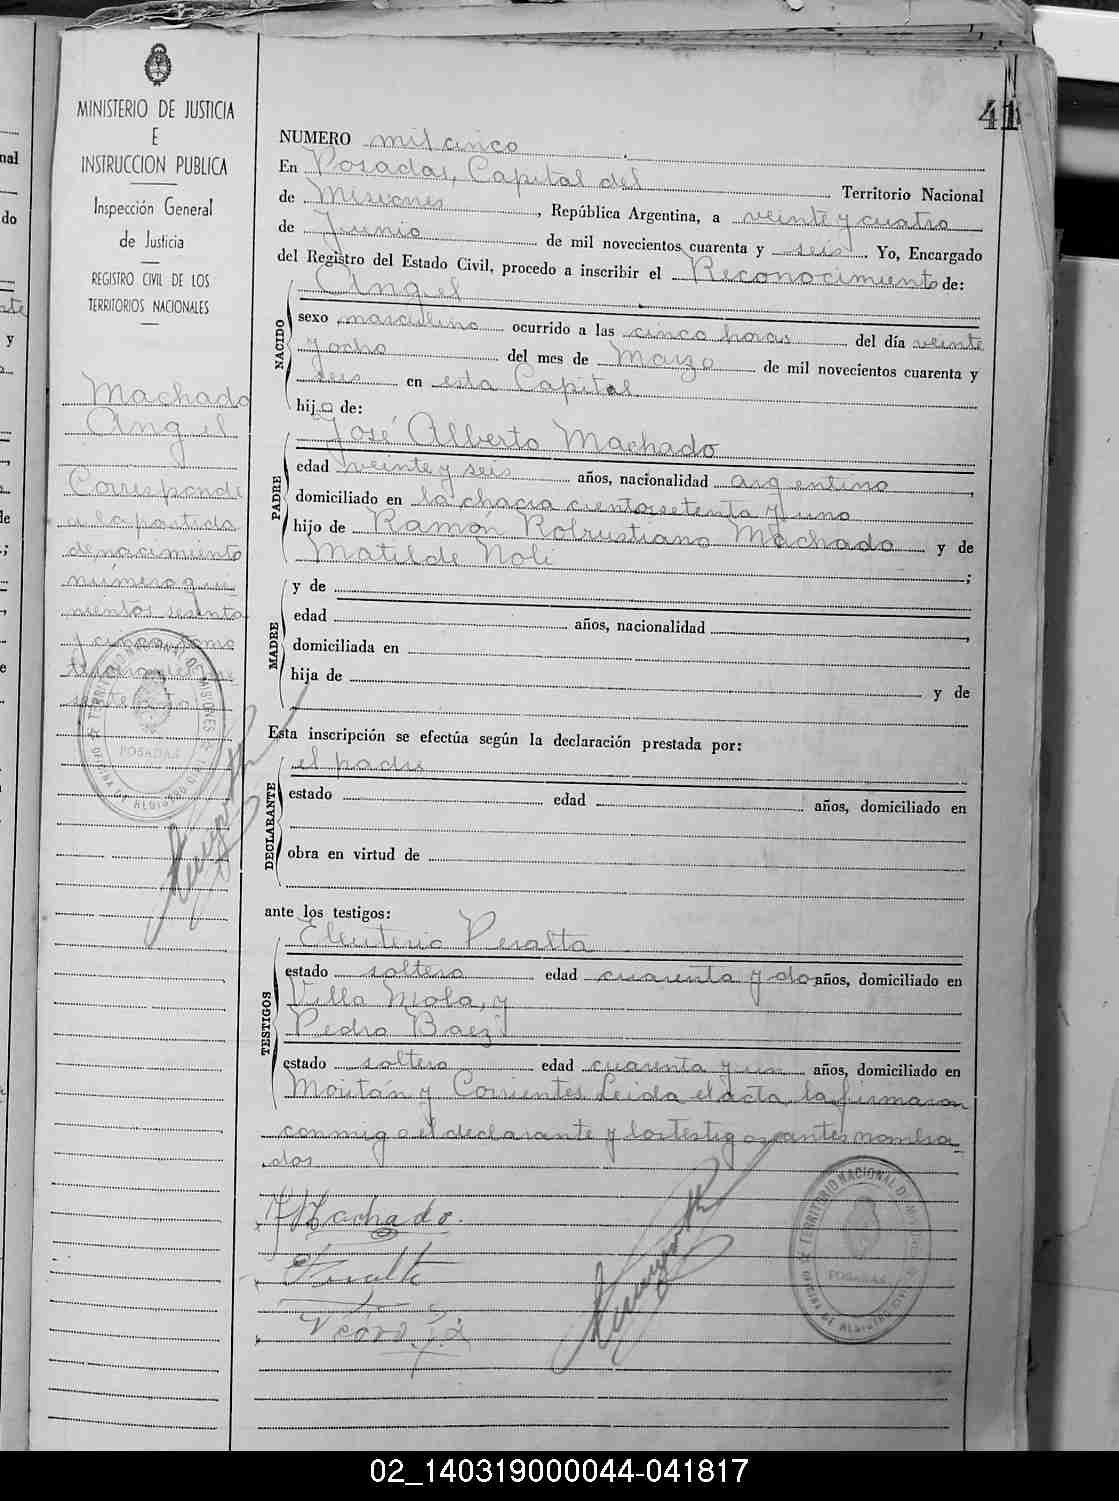 41
MINISTERIO DE JUSTICIA
E
INSTRUCCION PUBLICA
Inspección General
de Justicia
REGISTRO CIVIL DE LOS
TERRITORIOS NACIONALES
Machado
Angel
Corresponde
a la partida
de nacimiento
número qui
nientos sesenta
y cinco tomo
NUMERO mil cinco
En Posadas, Capital del Territorio Nacional
de Misiones, República Argentina, a veinte y cuatro
de Junio de mil novecientos cuarenta y seis Yo, Encargado
del Registro del Estado Civil, procedo a inscribir el Reconocimiento de:
NACIDO
Angel
sexo masculino ocurrido a las cinco horas del día veinte
y ocho del mes de Marzo de mil novecientos cuarenta y
seis en esta Capital
hijo de:
PADRE
José Alberto Machado
edad veinte y seis años, nacionalidad argentino,
domiciliado en la chacra ciento setenta y uno
hijo de Ramon Robustiano Machado y de
Matilde Noli;
MADRE
y de
edad años, nacionalidad,
domiciliada en
hija de y de
Esta inscripción se efectúa según la declaración prestada por:
DECLARANTE
el padre
estado edad años, domiciliado en
obra en virtud de
ante los testigos:
TESTIGOS
Eleuterio Peralta
estado soltero edad cuarenta y dos años, domiciliado en
Villa Mola, y
Pedro Baez
estado soltero edad cuarenta y un años, domiciliado en
Moritán y Corrientes. Leida el acta, la firmaron
conmigo el declarante y los testigos antes nombra
dos
Machado.
Peralta
TERRITORIO NACIONAL DE MISIONES
POSADAS
OFICINA DE REGISTRO CIVIL
02_140319000044-041817